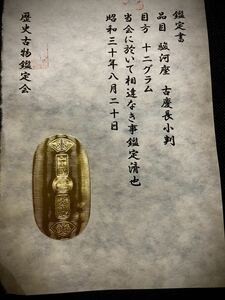 鑑定書
品目 駿河座 古慶長小判
目方 十二グラム
当会に於いて相違なき事鑑定済也
昭和三十年八月二十日
歴史古物鑑定会